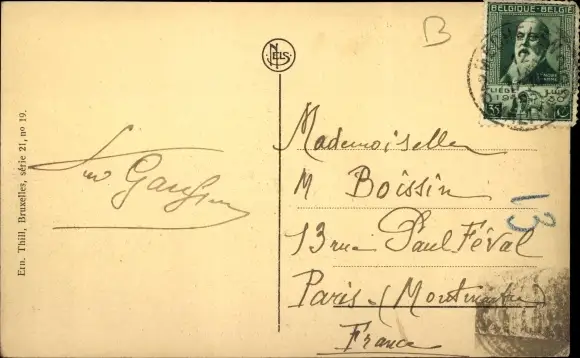 B
BELGIQUE-BELGIË
LIÉGE
1930
35 C
NELS
Ern. Thill, Bruxelles, série 21, no 19.
Mademoiselle
M Boissin
13 rue Paul Féval
Paris (Montmartre)
France
13